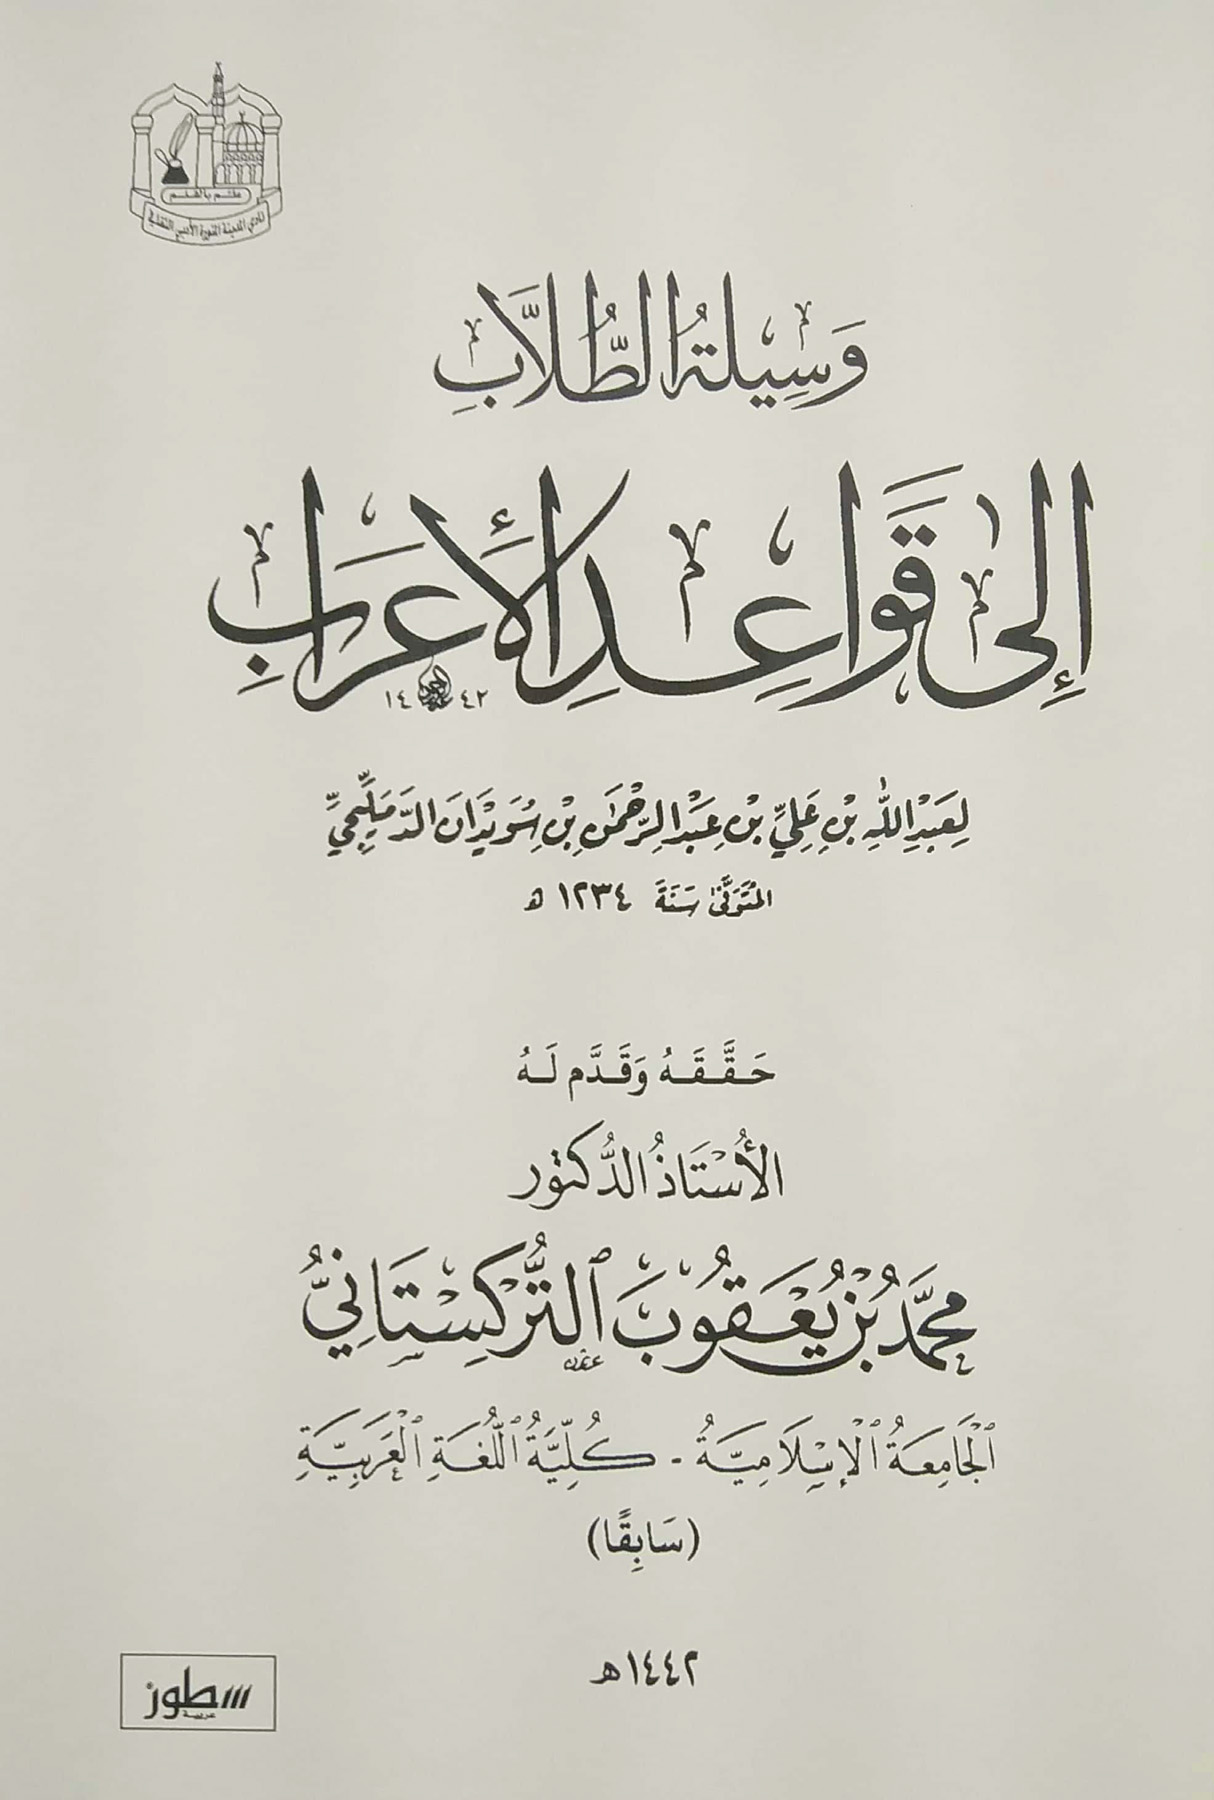 علم بالقلم
نادي المدينة المنورة الأدبي الثقافي
وَسِيلَةُ الطُّلَّابِ
إِلَى قَوَاعِدِ الأَعرَابِ
١٤٤٢
لِعَبْدِ اللهِ بْنِ عَلِيِّ بْنِ عَبْدِ الرَّحْمَنِ بْنِ سُوَيْدَانَ الدَّمَلِّيجِيِّ
المُتَوَفَّى سَنَةَ ١٢٣٤ هـ
حَقَّقَهُ وَقَدَّمَ لَهُ
الأُسْتَاذُ الدُّكتور
محمَّدُ بْنُ يَعْقُوبَ ٱلتُّرْكِسْتَانِيُّ
ٱلْجَامِعَةُ ٱلْإِسْلَامِيَّةُ - كُلِّيَّةُ ٱللُّغَةِ ٱلْعَرَبِيَّةِ
(سَابِقًا)
١٤٤٢هـ
سطور
عربية